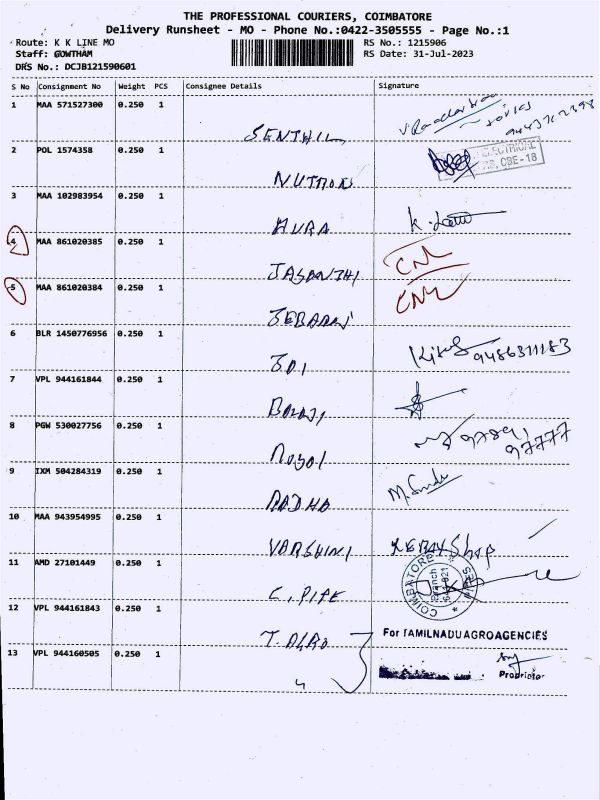 THE PROFESSIONAL COURIERS, COIMBATORE
Delivery Runsheet - MO - Phone No.:0422-3505555 - Page No.:1
Route: K K LINE MO RS No.: 1215906
Staff: GOWTHAM RS Date: 31-Jul-2023
DRS No.: DCJB121590601
S No Consignment No Weight PCS Consignee Details Signature
1 MAA 571527300 0.250 1 SENTHIL
2 POL 1574358 0.250 1 NUTRON ELECTRICAL CBE-18
3 MAA 102983954 0.250 1 AURA
4 MAA 861020385 0.250 1 JASONTHI CNL
5 MAA 861020384 0.250 1 CNL
6 BLR 1450776956 0.250 1 9486311183
7 VPL 944161844 0.250 1 BALAJI
8 PGW 530027756 0.250 1 97777
9 IXM 504284319 0.250 1 RADHA
10 MAA 943954995 0.250 1 VARSHINI XEROX Shop
11 AMD 27101449 0.250 1 C. PIPE COIMBATORE Branch PIPES
12 VPL 944161843 0.250 1 T. AGRO For TAMILNADU AGROAGENCIES
13 VPL 944160505 0.250 1 Proprietor